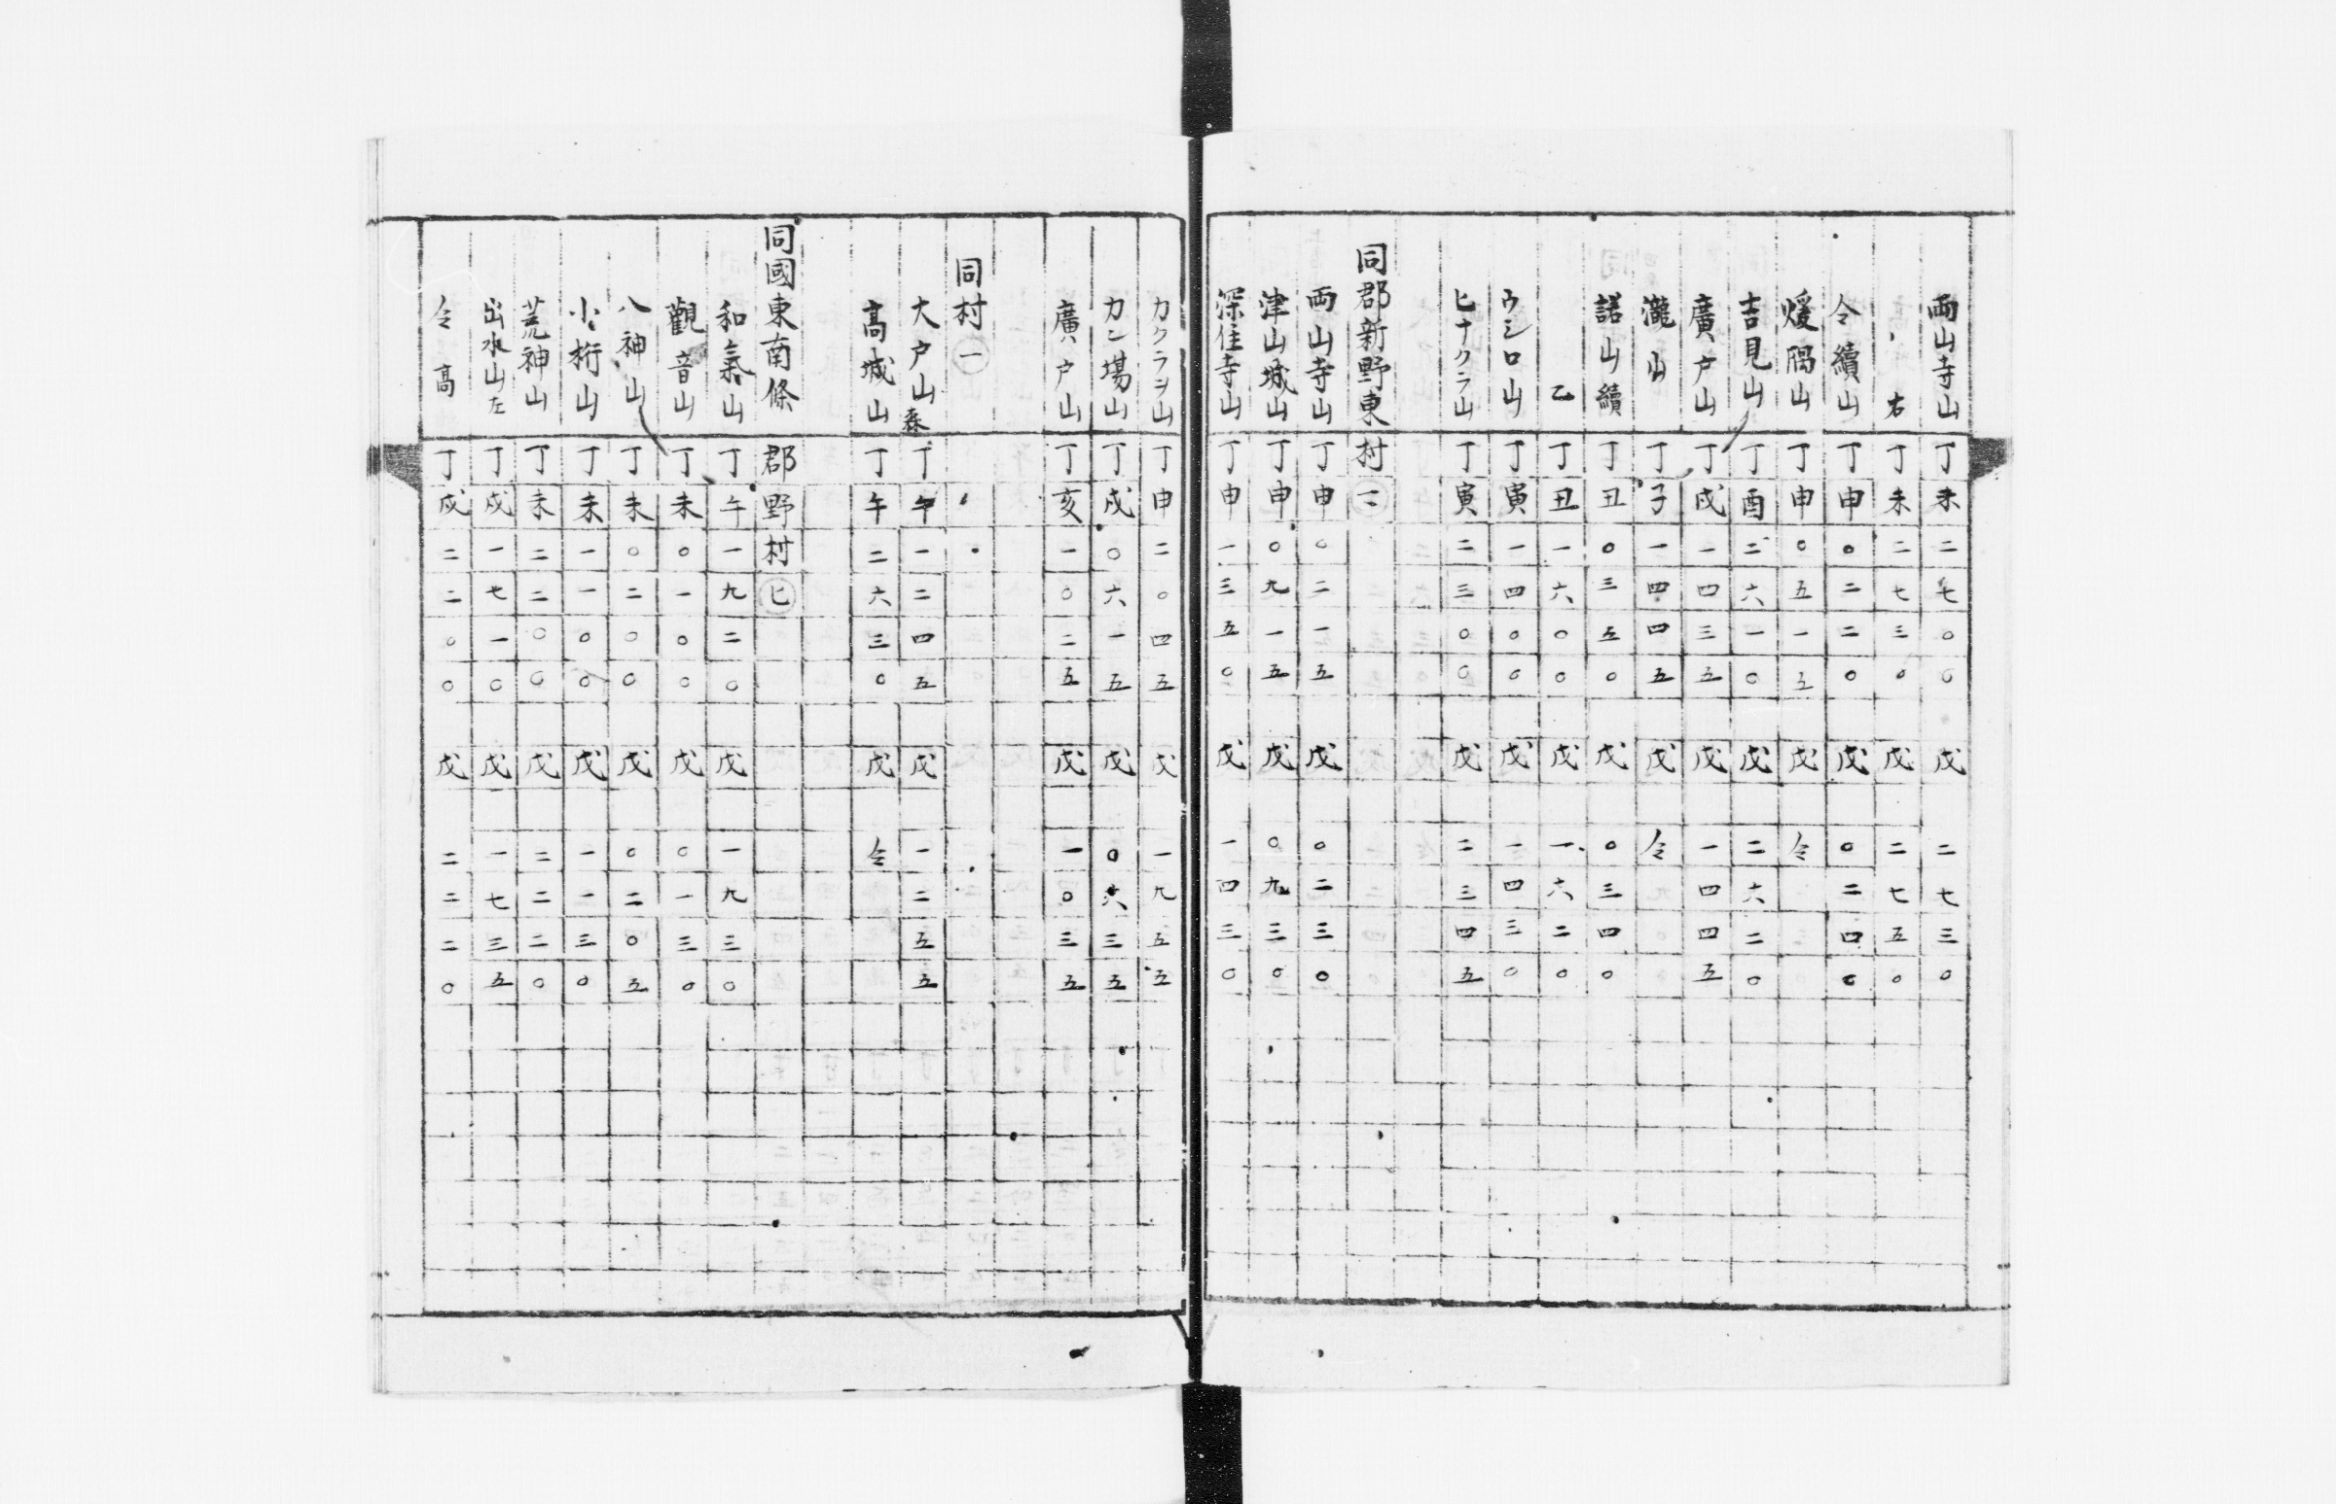 両山寺山 丁未 二七〇〇 戊 二七三〇
〃 右 丁未 二七三〇 戊 二七五〇
仝續山 丁申 〇二二〇 戊 〇二四〇
煖隅山 丁申 〇五一五 戊 仝
吉見山 丁酉 二六一〇 戊 二六二〇
廣戸山 丁戌 一四三五 戊 一四四五
瀧山 丁子 一四四五 戊 仝
諾山續 丁丑 〇三五〇 戊 〇三四〇
乙 丁丑 一六〇〇 戊 一六二〇
ウシロ山 丁寅 一四〇〇 戊 一四三〇
ヒナクラ山 丁寅 二三〇〇 戊 二三四五
同郡新野東村 ㊁
両山寺山 丁申 〇二一五 戊 〇二三〇
津山城山 丁申 〇九一五 戊 〇九三〇
深住寺山 丁申 一三五〇 戊 一四三〇
カクラヲ山 丁申 二〇四五 戊 一九五五
カン場山 丁戌 〇六一五 戊 〇六三五
廣戸山 丁亥 一〇二五 戊 一〇三五
同村 ㊀
大戸山森 丁午 一二四五 戊 一二五五
高城山 丁午 二六三〇 戊 仝
同國東南條郡野村 ㋪
和氣山 丁午 一九二〇 戊 一九三〇
觀音山 丁未 〇一〇〇 戊 〇一三〇
八神山 丁未 〇二〇〇 戊 〇二〇五
小桁山 丁未 一一〇〇 戊 一一三〇
荒神山 丁未 二二〇〇 戊 二二二〇
出水山左 丁戌 一七一〇 戊 一七三五
仝 高 丁戌 二二〇〇 戊 二二二〇